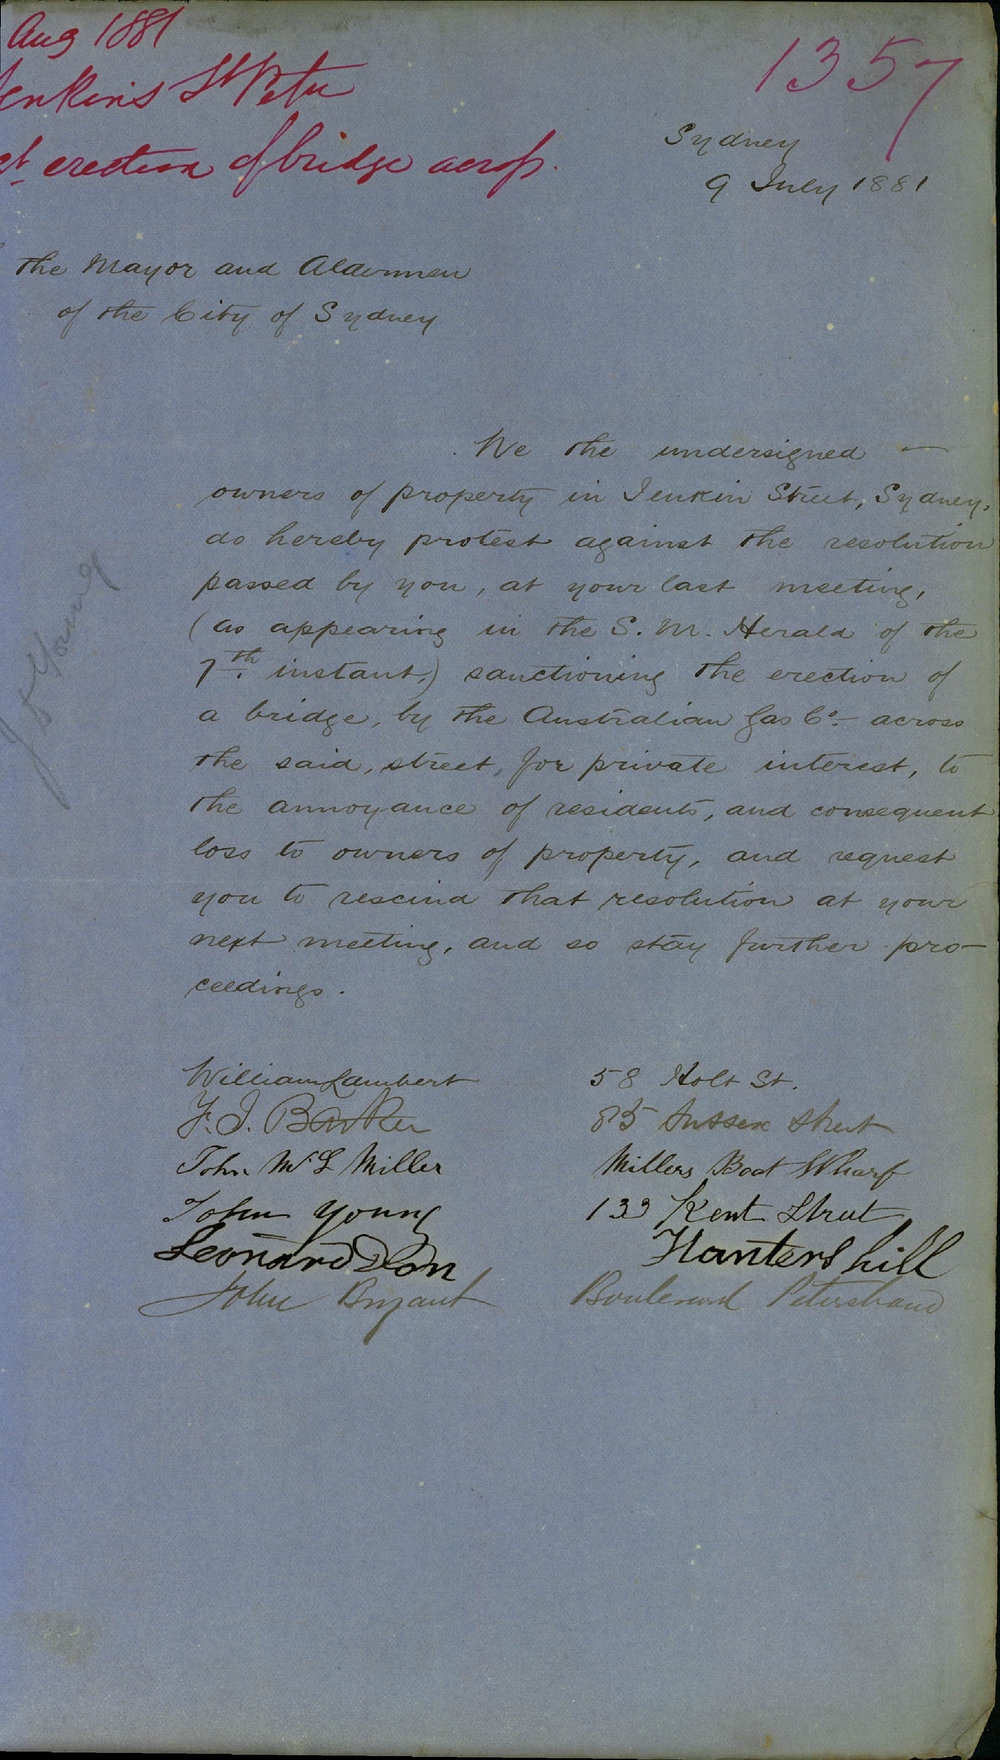 Aug 1881
enkins St Petn
st erection of bridge across
1357
Sydney
9 July 1881
The Mayor and Aldermen
of the City of Sydney
We the undersigned —
owners of property in Jenkin Street, Sydney,
do hereby protest against the resolution
passed by you, at your last meeting,
(as appearing in the S. M. Herald of the
7th instant,) sanctioning the erection of
a bridge, by the Australian Gas Co. across
the said, street, for private interest, to
the annoyance of residents, and consequent
loss to owners of property, and request
you to rescind that resolution at your
next meeting, and so stay further pro-
ceedings.
William Lambert 58 Holt St.
F. J. Barker 85 Sussex Street
John McL Miller Millers Boat Wharf
John Young 133 Kent Street
Leonard Don Hunters hill
John Bryant Boulevard Petersham
J Young